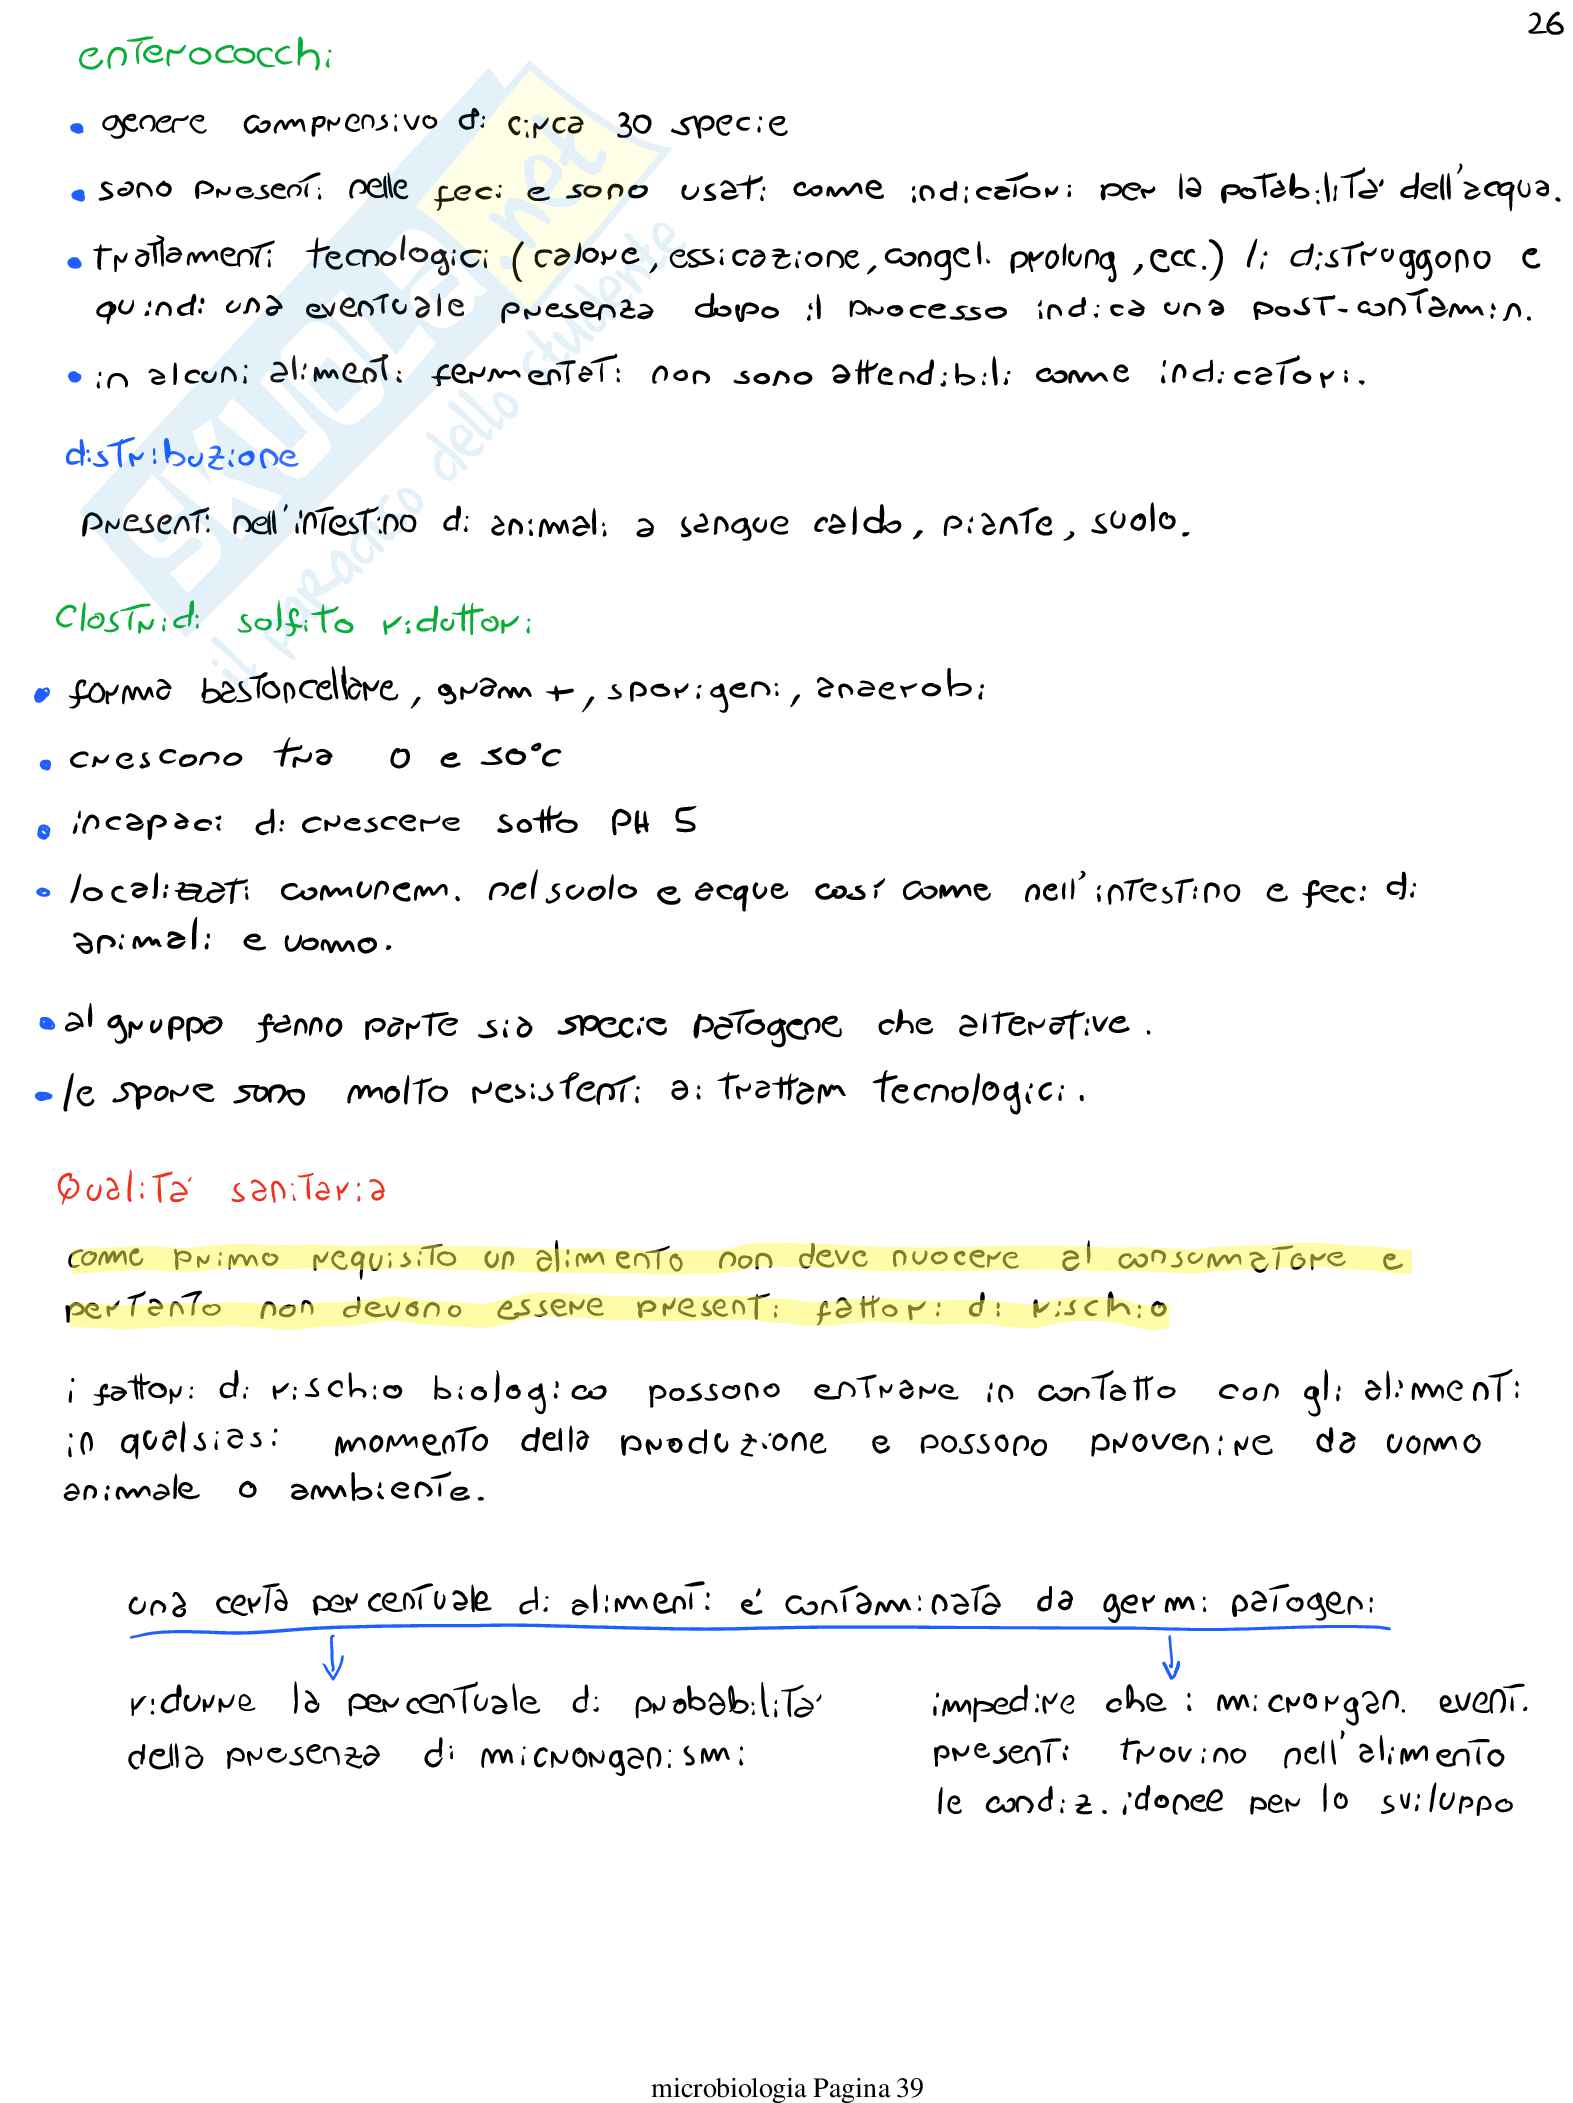 26
enterococchi
• genere comprensivo di circa 30 specie
• sono presenti nelle feci e sono usati come indicatori per la potabilità dell'acqua.
• trattamenti tecnologici (calore, essicazione, congel. prolung, ecc.) li distruggono e
quindi una eventuale presenza dopo il processo indica una post-contamin.
• in alcuni alimenti fermentati non sono attendibili come indicatori.
distribuzione
presenti nell'intestino di animali a sangue caldo, piante, suolo.
Clostridi solfito riduttori
• forma bastoncellare, gram +, sporigeni, anaerobi
• crescono tra 0 e 50°C
• incapaci di crescere sotto PH 5
• localizzati comunem. nel suolo e acque così come nell'intestino e feci di
animali e uomo.
• al gruppo fanno parte sia specie patogene che alterative.
• le spore sono molto resistenti ai trattam tecnologici.
Qualità sanitaria
come primo requisito un alimento non deve nuocere al consumatore e
pertanto non devono essere presenti fattori di rischio
i fattori di rischio biologico possono entrare in contatto con gli alimenti
in qualsiasi momento della produzione e possono provenire da uomo
animale o ambiente.
una certa percentuale di alimenti é contaminata da germi patogeni
ridurre la percentuale di probabilità
della presenza di microrganismi
impedire che i microrgan. event.
presenti trovino nell'alimento
le condiz. idonee per lo sviluppo
SKUOLA.net
il paradiso dello studente
microbiologia Pagina 39